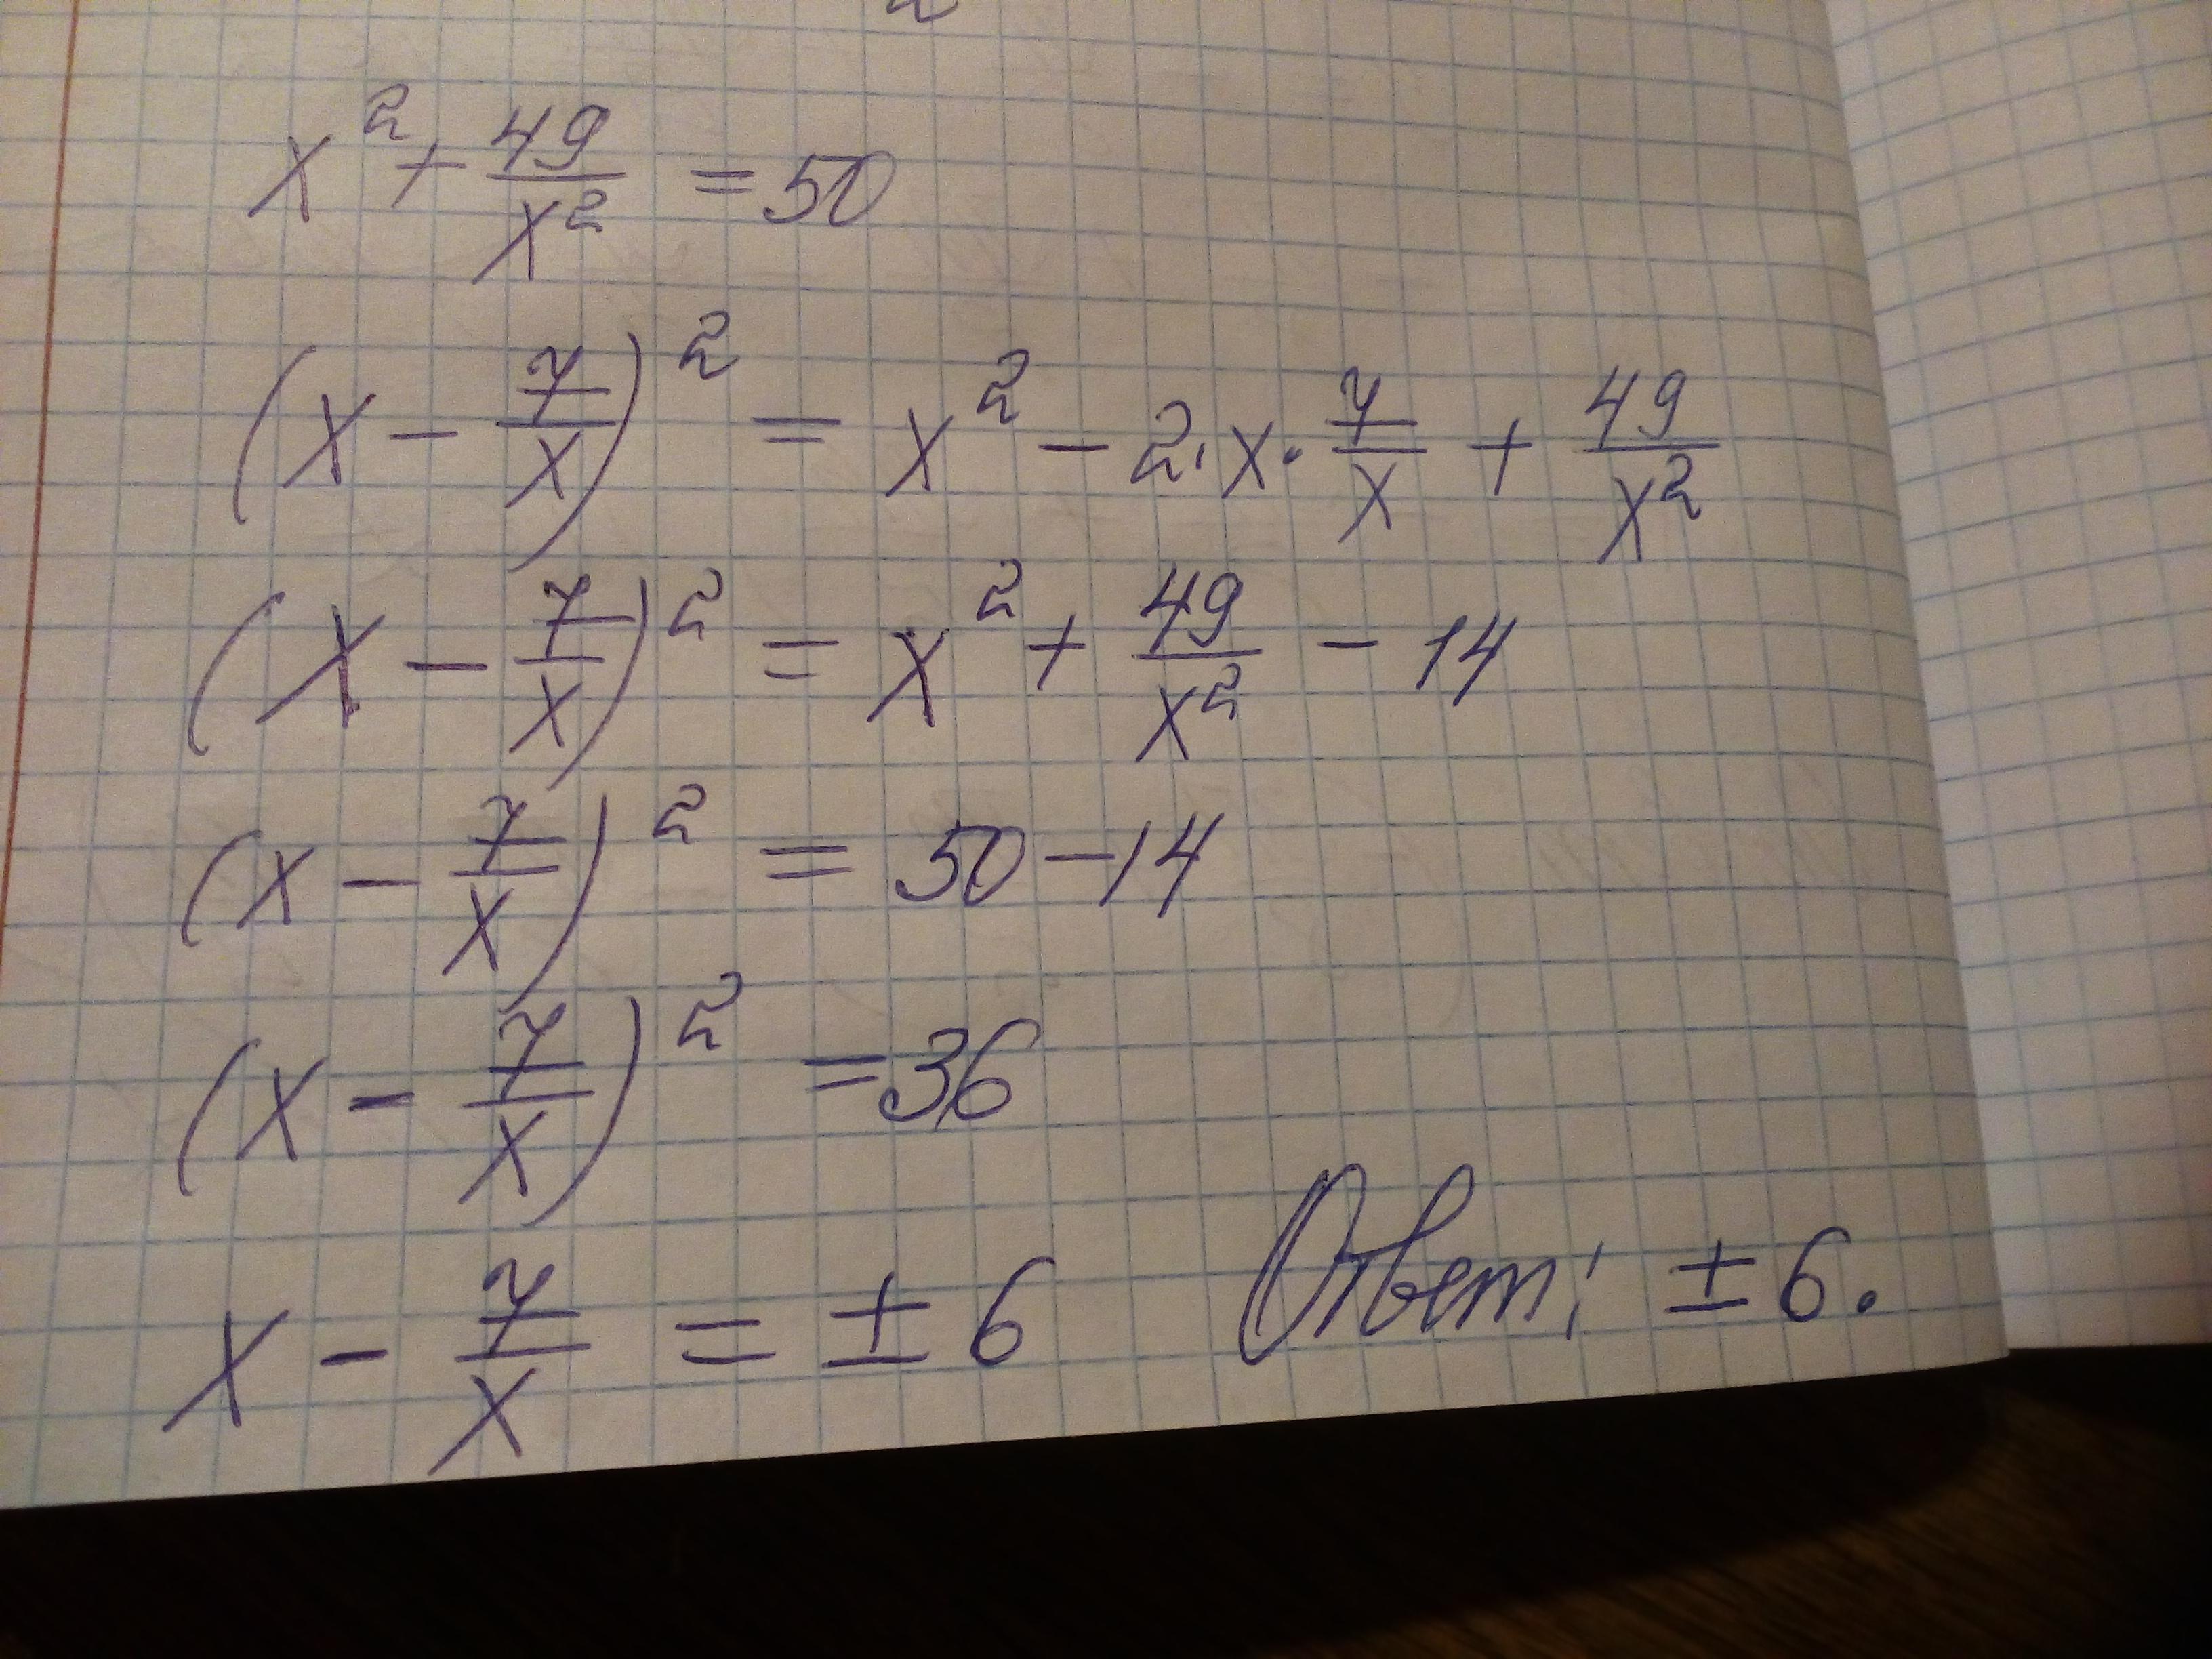 x² + 49/x² = 50
(x - 7/x)² = x² - 2·x·7/x + 49/x²
(x - 7/x)² = x² + 49/x² - 14
(x - 7/x)² = 50 - 14
(x - 7/x)² = 36
x - 7/x = ± 6 Ответ: ± 6.